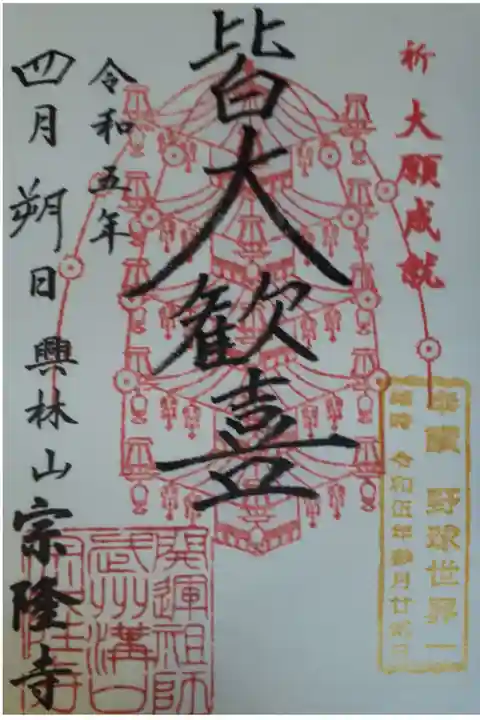 祈 大願成就
奉讃 野球世界一
令和伍年参月廿弐日
皆大歓喜
令和五年
四月朔日 興林山宗隆寺
開運祖師
武州溝口